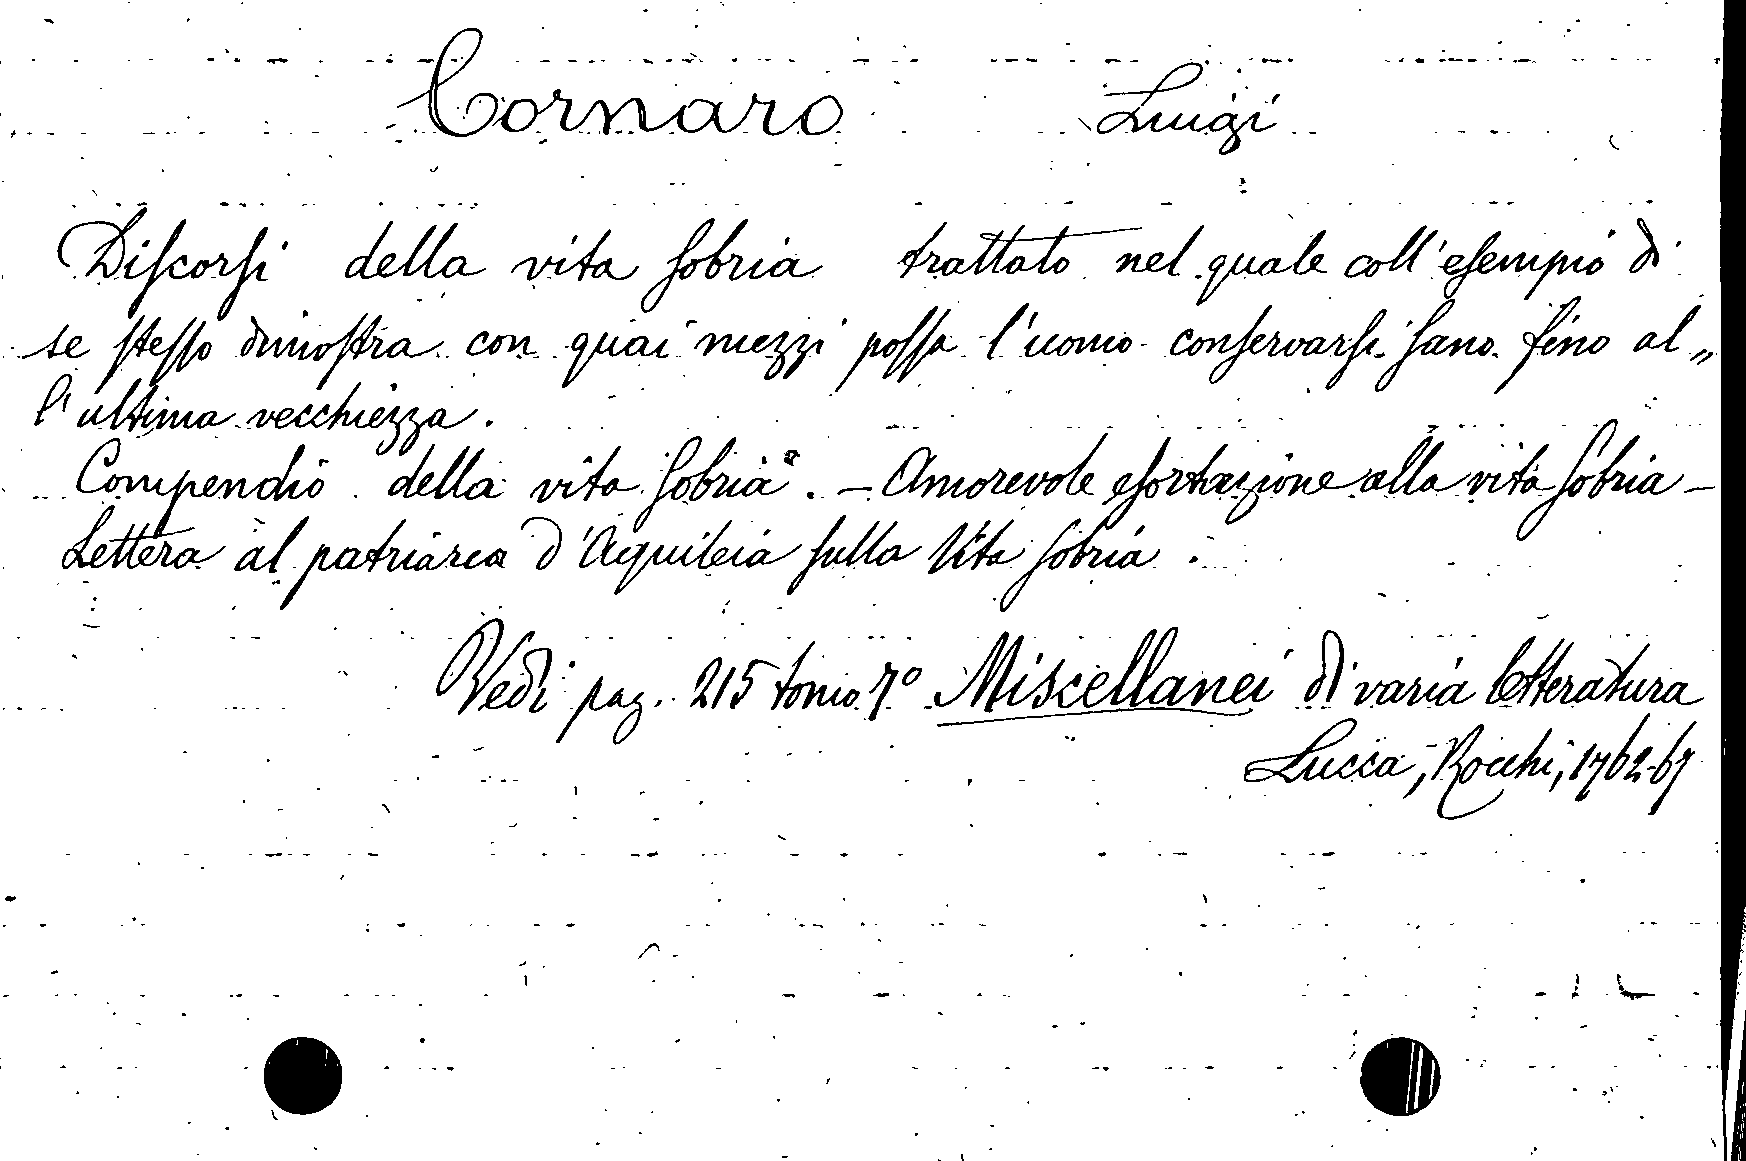 Cornaro Luigi
Discorsi della vita sobria trattato nel quale coll'esempio di
se stesso dimostra con quai mezzi possa l'uomo conservarsi sano fino al„
l'ultima vecchiezza.
Compendio della vita sobria. – Amorevole esortazione alla vita sobria –
Lettera al patriarca d'Aquileia sulla Vita sobria.
Vedi pag. 215 tomo 7º Miscellanei di varia letteratura
Lucca, Rocchi, 1762-67